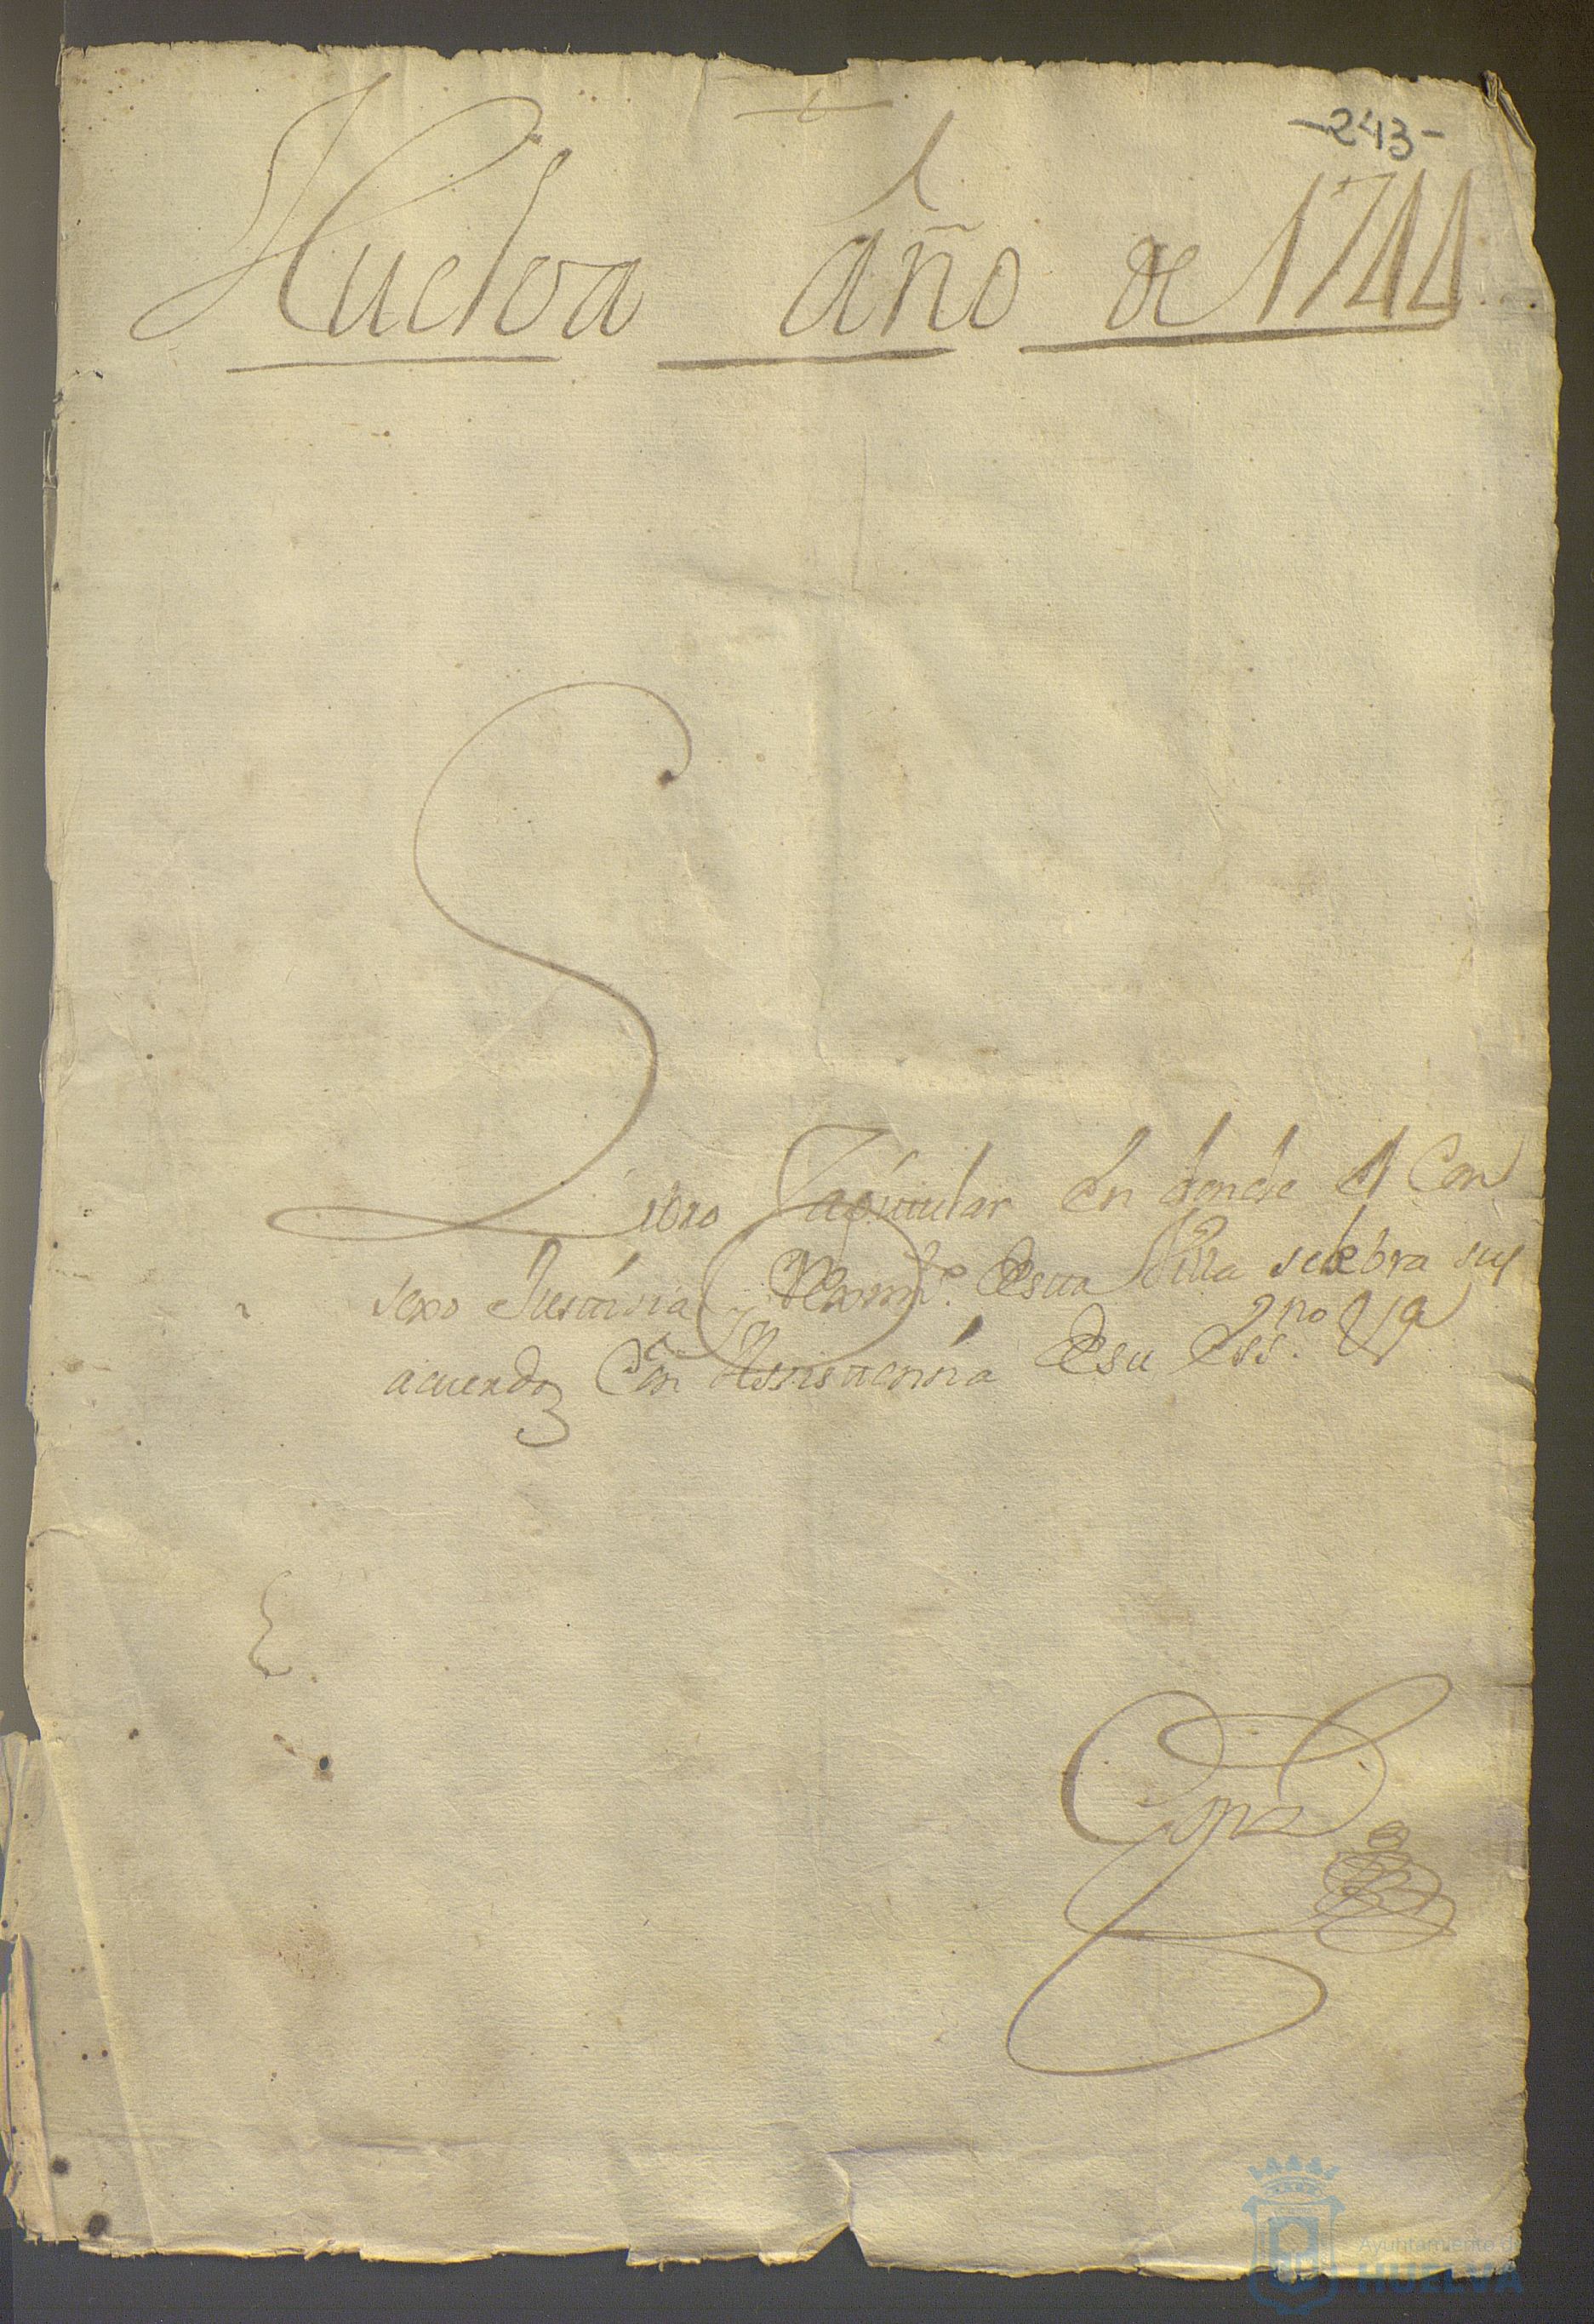 -243-
Huelva año de 1744
Libro Capitular En donde el Con
sexo Justisia y Rexim.º Desta Villa selebra sus
acuerdos Con Assistensia De su Ess.no
Ayuntamiento de
HUELVA